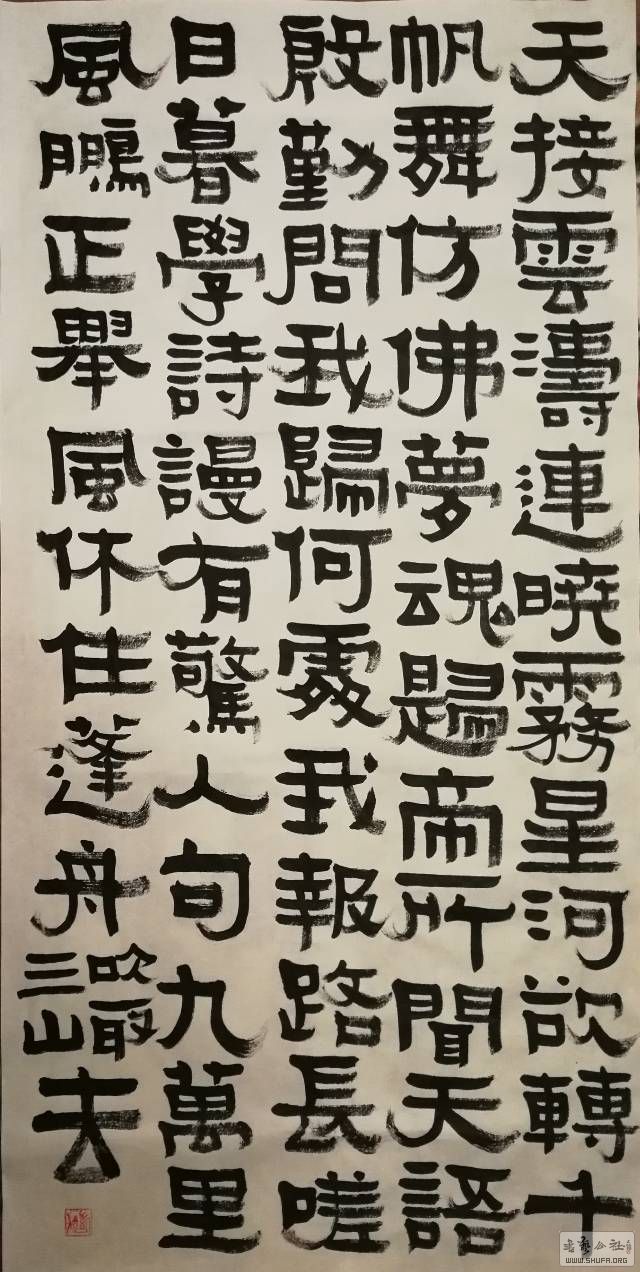 天接雲濤連曉霧星河欲轉千
帆舞仿佛夢魂歸帝所聞天語
殷勤問我歸何處我報路長嗟
日暮學詩謾有驚人句九萬里
風鵬正舉風休住蓬舟吹取三山去
书艺公社
WWW.SHUFA.ORG